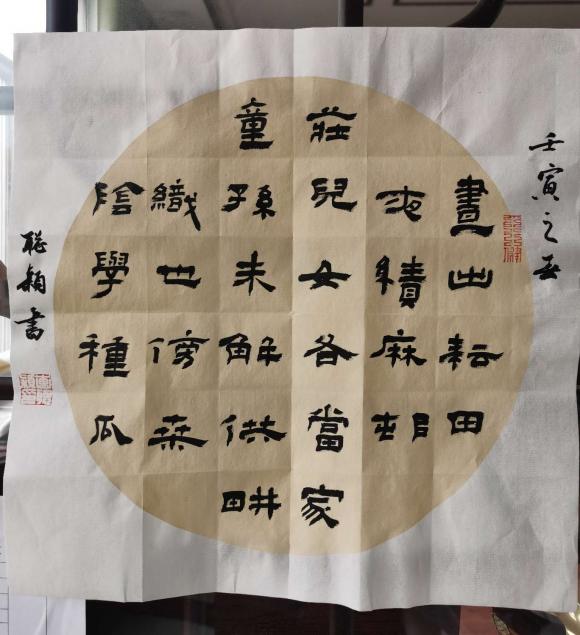 壬寅之春
晝出耘田
夜績麻邨
莊兒女各當家
童孫未解供畊
織也傍桒
陰學種瓜
聪颖書